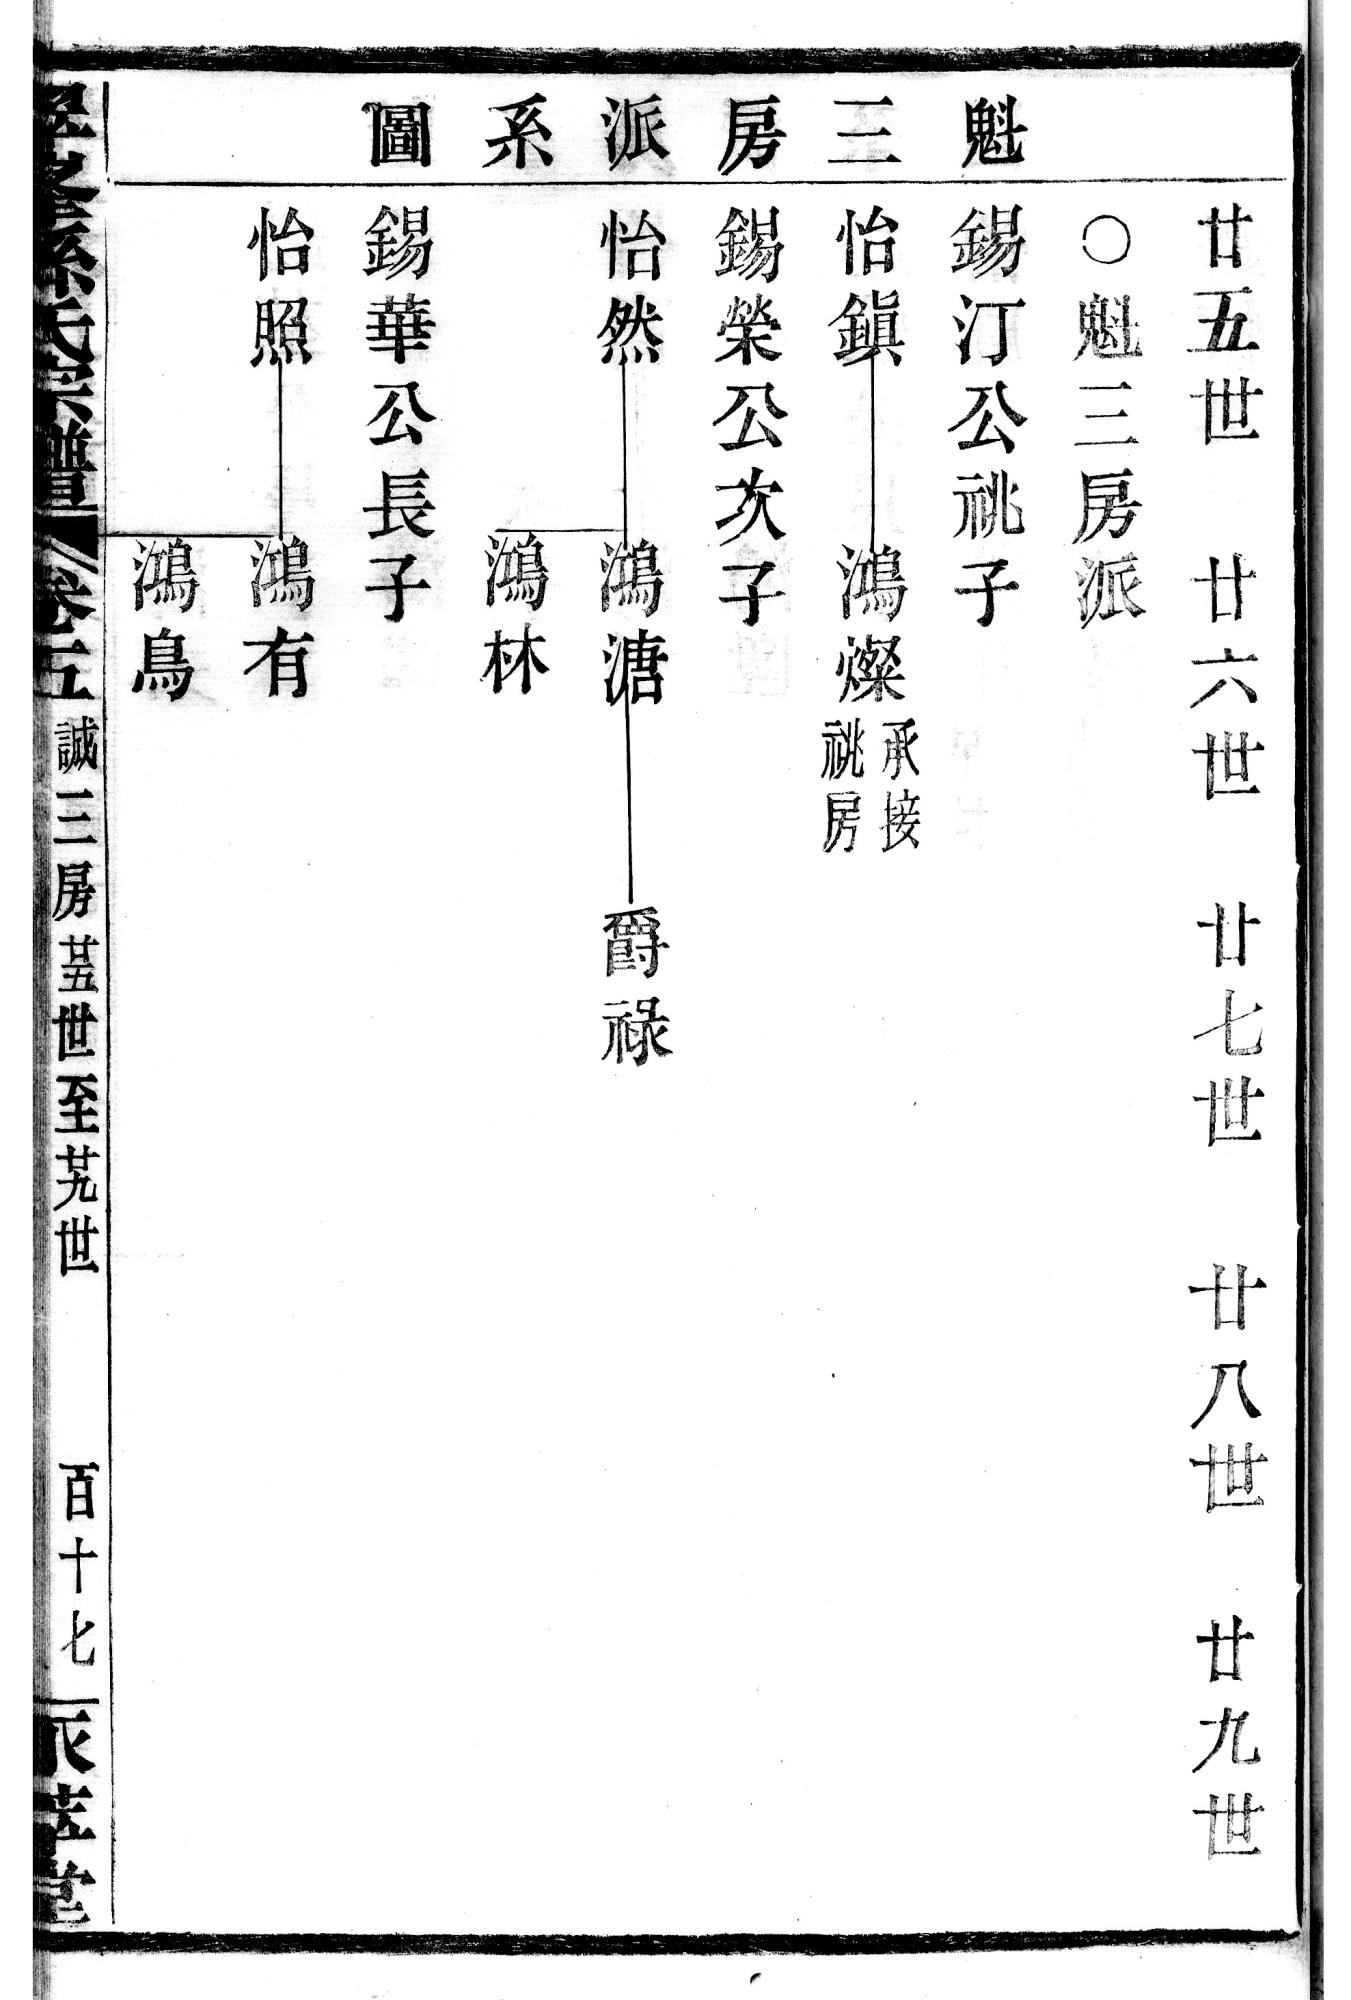 魁三房派系圖
廿五世　廿六世　廿七世　廿八世　廿九世
○魁三房派
錫汀公祧子
怡鎮　鴻燦　承接祧房
錫榮公次子
怡然　鴻溏　爵祿
鴻林
錫華公長子
怡照　鴻有
鴻鳥
孫氏宗譜　卷五　誠三房廿五世至廿九世　百十七　堂